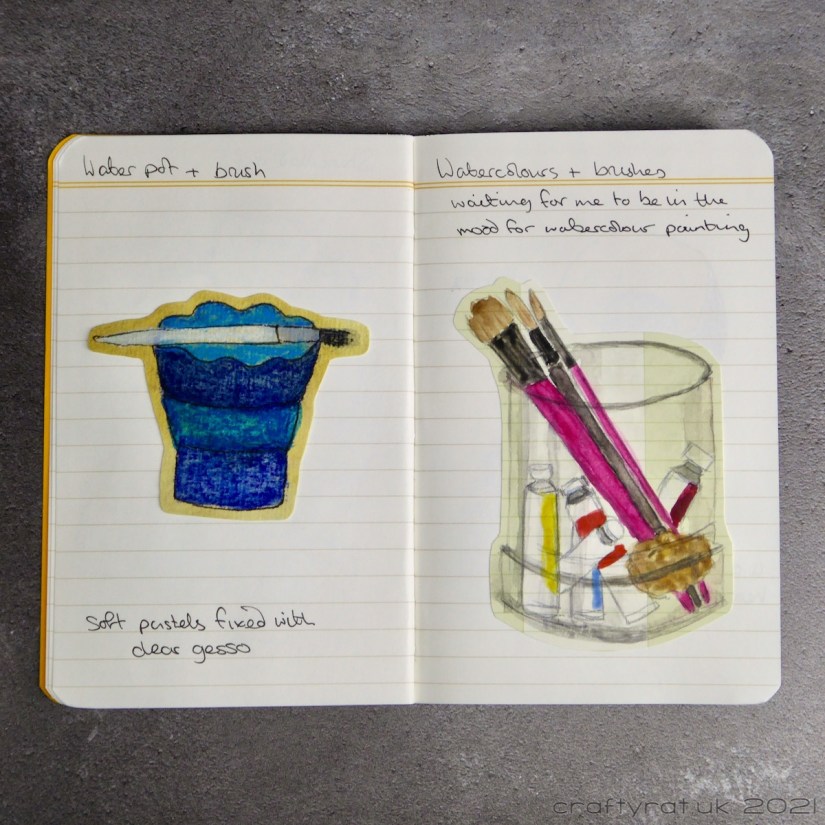 Water pot + brush
Soft pastels fixed with
clear gesso
Watercolours + brushes
waiting for me to be in the
mood for watercolour painting
craftyrat.uk 2021